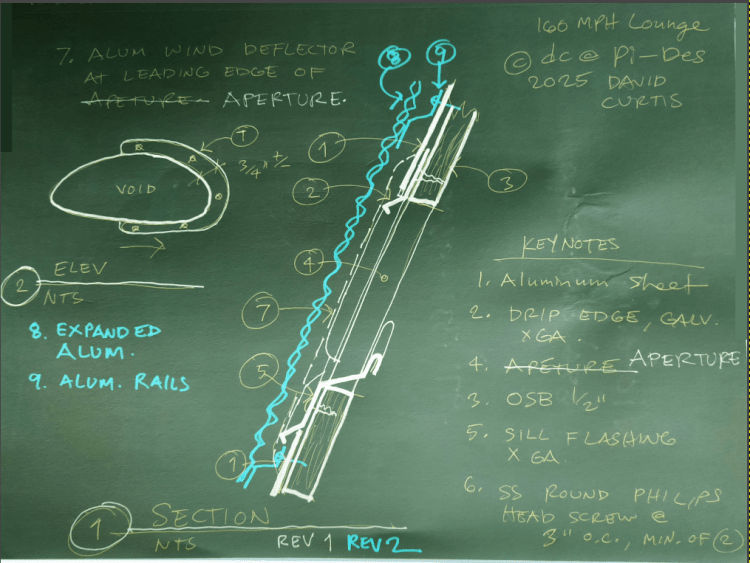 160 MPH Lounge
© dc@ Pi-Des
2025 DAVID
CURTIS
7. ALUM WIND DEFLECTOR
AT LEADING EDGE OF
APETURE APERTURE.
8
9
7
3/4" +/-
VOID
1
2
3
4
7
5
1
2 ELEV
NTS
8. EXPANDED
ALUM.
9. ALUM. RAILS
KEYNOTES
1. Aluminum sheet
2. DRIP EDGE, GALV.
XGA.
4. APETURE APERTURE
3. OSB 1/2"
5. SILL FLASHING
X GA.
6. SS ROUND PHILIPS
HEAD SCREW @
3" O.C., MIN. OF (2)
1 SECTION
NTS
REV 1 REV 2